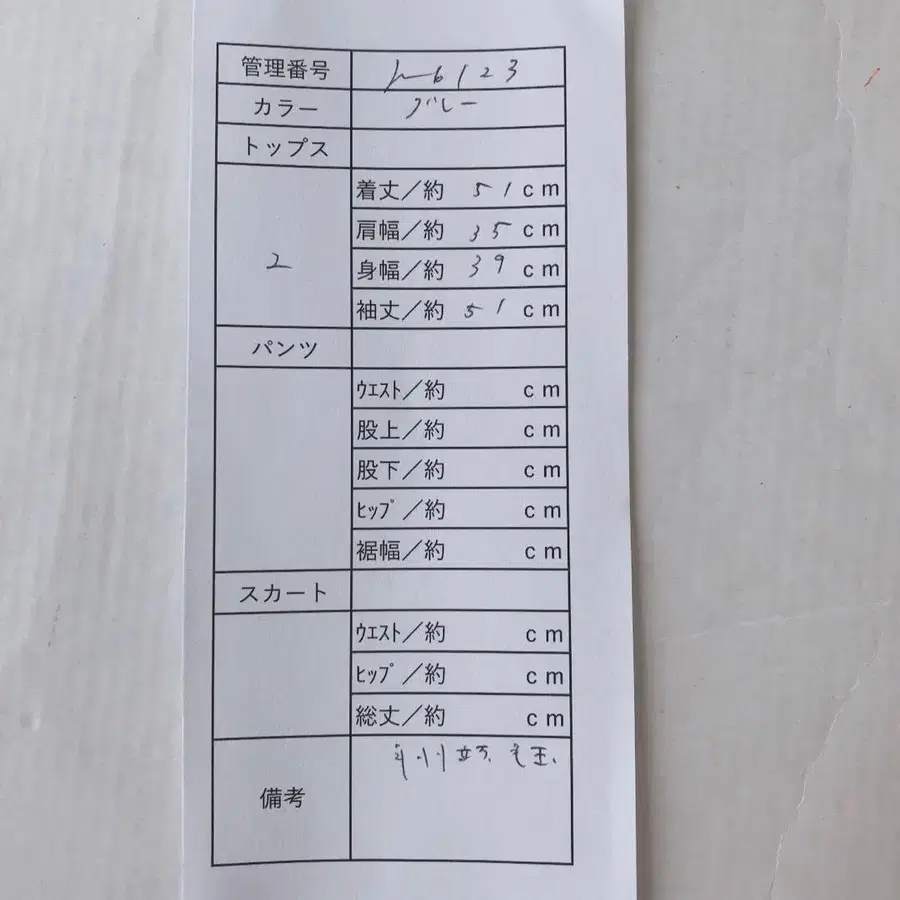 管理番号 6123
カラー グレー
トップス
2
着丈／約 51 cm
肩幅／約 35 cm
身幅／約 39 cm
袖丈／約 51 cm
パンツ
ｳｴｽﾄ／約 cm
股上／約 cm
股下／約 cm
ﾋｯﾌﾟ／約 cm
裾幅／約 cm
スカート
ｳｴｽﾄ／約 cm
ﾋｯﾌﾟ／約 cm
総丈／約 cm
備考